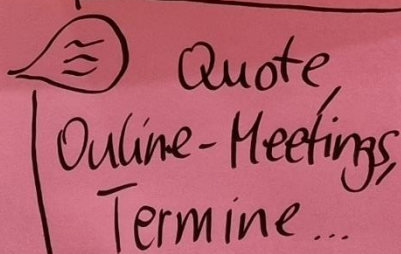 Quote,
Online-Meetings,
Termine...